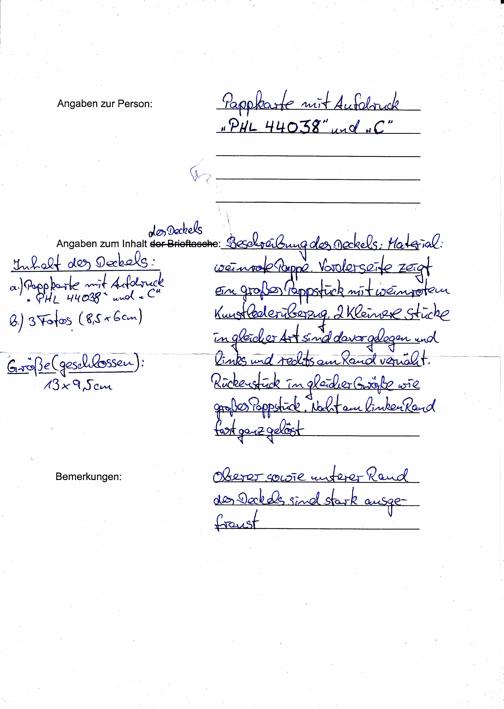 Angaben zur Person:
Pappkarte mit Aufdruck
„PHL 44038" und „C"
des Deckels
Angaben zum Inhalt der Brieftasche:
Beschreibung des Deckels: Material:
weinrote Pappe. Vorderseite zeigt
ein großes Pappstück mit weinrotem
Kunstlederüberzug, 2 kleinere Stücke
in gleicher Art sind davor gelegen und
links und rechts am Rand vernäht.
Rückenstück in gleicher Größe wie
großes Pappstück. Naht am linken Rand
fast ganz gelöst
Inhalt des Deckels:
a.) Pappkarte mit Aufdruck
„PHL 44038" und „C"
b.) 3 Fotos (8,5 x 6cm)
Größe (geschlossen):
13 x 9,5cm
Bemerkungen:
Oberer sowie unterer Rand
des Deckels sind stark ausge-
franst